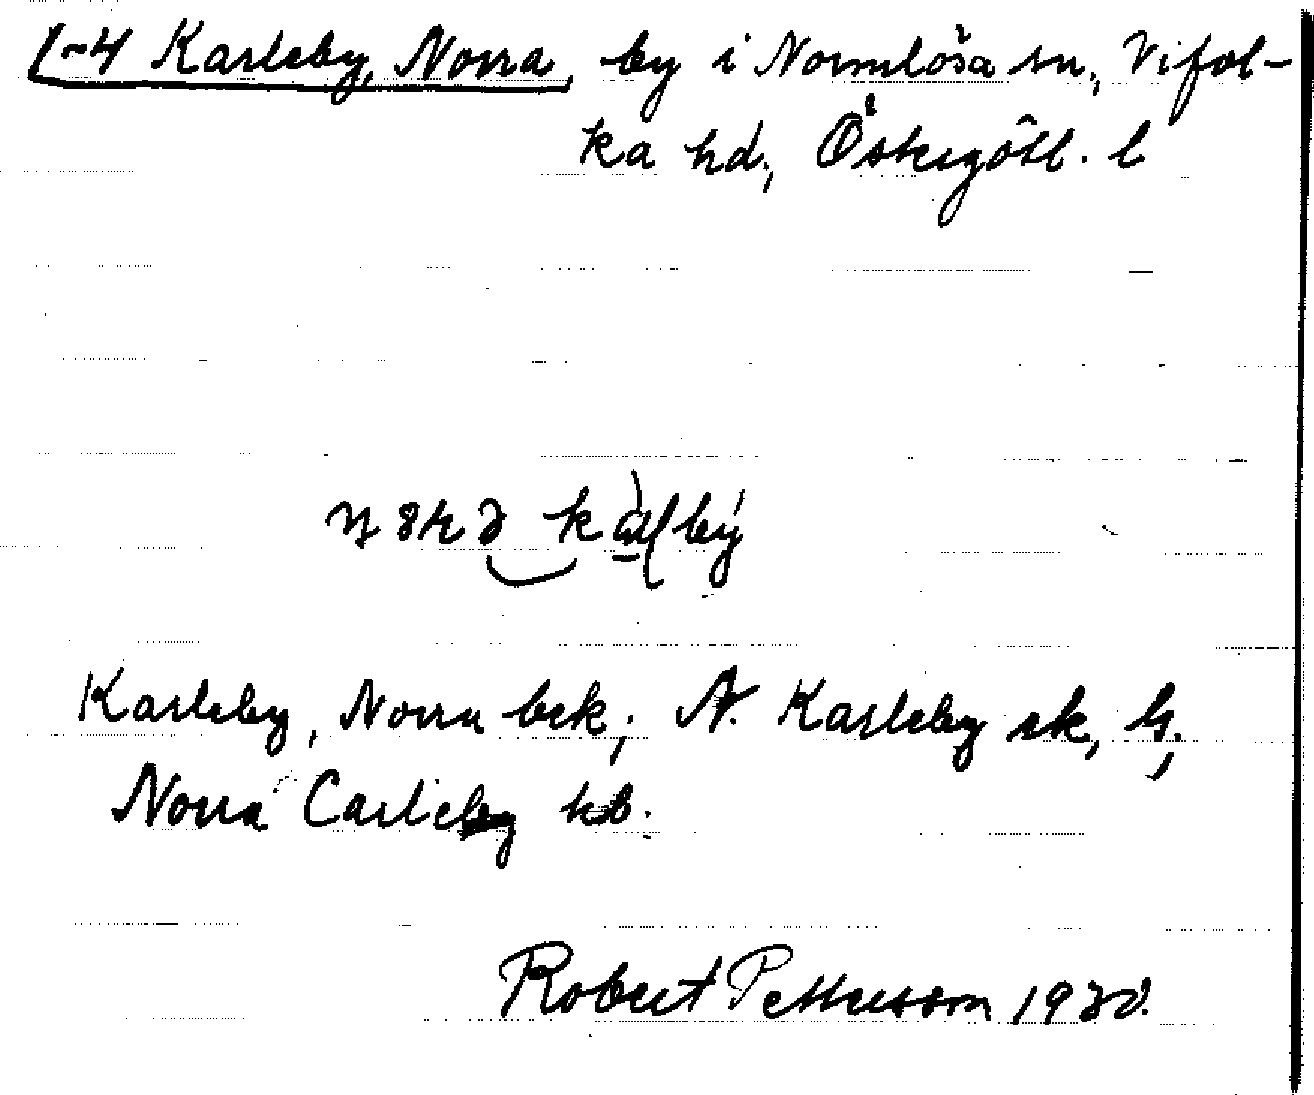 1-4 Karleby, Norra, by i Normlösa sn., Vifol-
ka hd., Östergötl. l
kálbý
Karleby, Norra bek; N. Karleby sk, G;
Norra Carleby kb.
Robert Pettersson